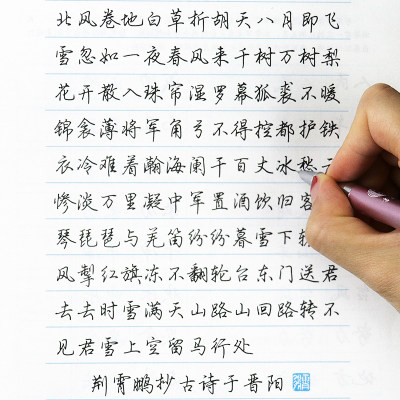 北风卷地白草折胡天八月即飞
雪忽如一夜春风来千树万树梨
花开散入珠帘湿罗幕狐裘不暖
锦衾薄将军角弓不得控都护铁
衣冷难着瀚海阑干百丈冰愁云
惨淡万里凝中军置酒饮归客
琴琵琶与羌笛纷纷暮雪下
风掣红旗冻不翻轮台东门送君
去去时雪满天山路山回路转不
见君雪上空留马行处
荆霄鹏抄古诗于晋阳